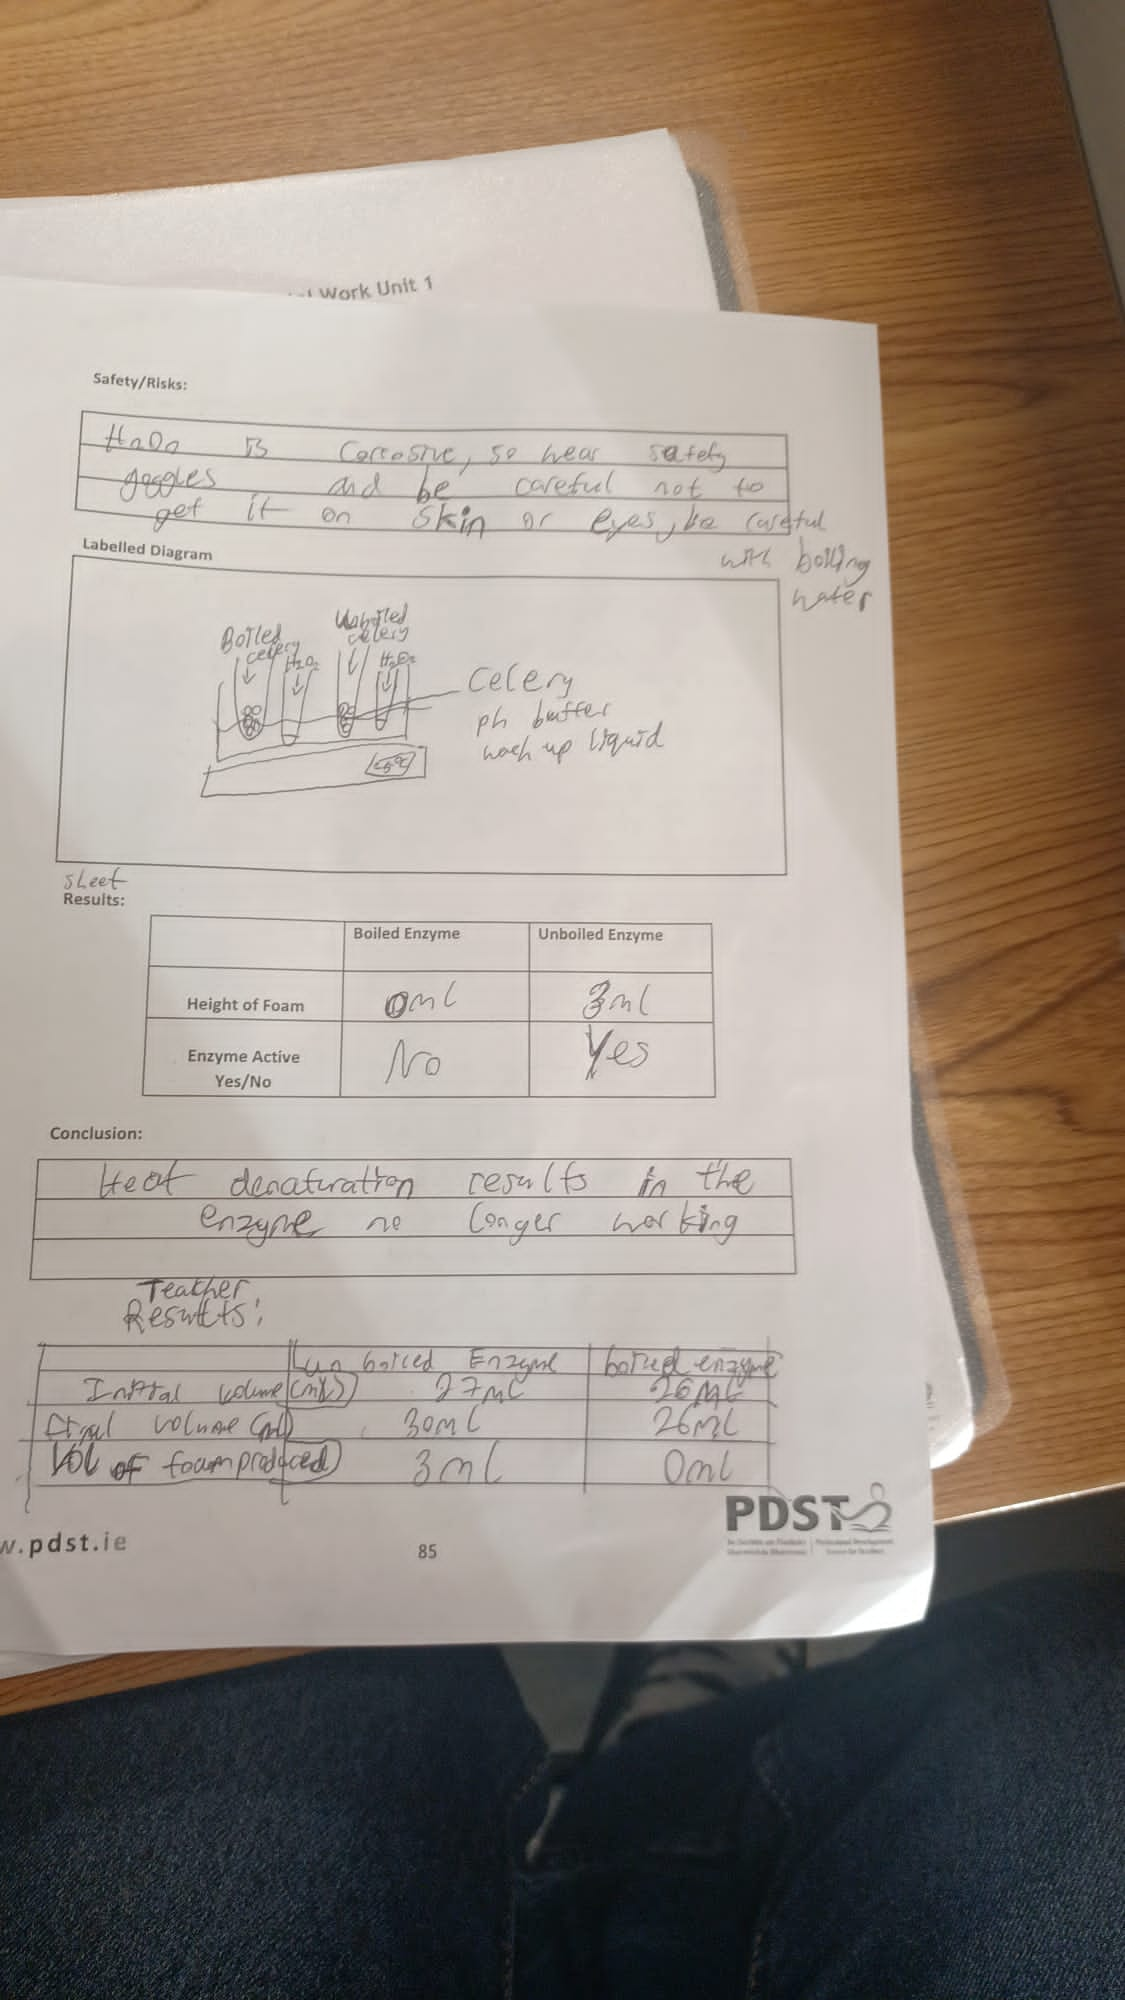 Work Unit 1
Safety/Risks:
H2O2 is corrosive, so wear safety
goggles and be careful not to
get it on skin or eyes, be careful
with boiling
water
Labelled Diagram
Boiled
celery
H2O2
Unboiled
celery
H2O2
Celery
ph buffer
wash up liquid
sheet
Results:
Boiled Enzyme Unboiled Enzyme
Height of Foam 0ml 3ml
Enzyme Active
Yes/No No Yes
Conclusion:
Heat denaturation results in the
enzyme no longer working
Teacher
Results:
unboiled Enzyme boiled enzyme
Initial volume (mls) 27ml 26ml
final volume (ml) 30ml 26ml
Vol of foam produced 3ml 0ml
w.pdst.ie
85
PDST